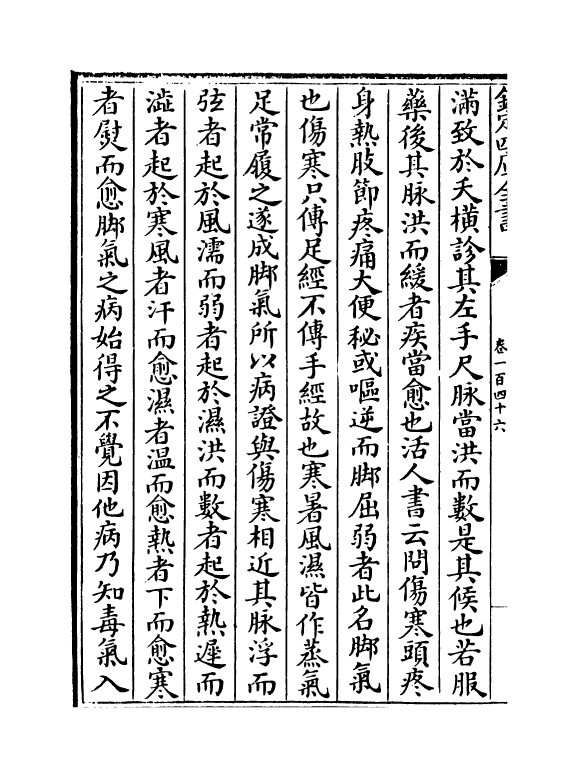 欽定四庫全書
卷一百四十六
滿致於夭橫診其左手尺脉當洪而數是其候也若服
藥後其脉洪而緩者疾當愈也活人書云問傷寒頭疼
身熱肢節疼痛大便秘或嘔逆而脚屈弱者此名脚氣
也傷寒只傳足經不傳手經故也寒暑風濕皆作蒸氣
足常履之遂成脚氣所以病證與傷寒相近其脉浮而
弦者起於風濡而弱者起於濕洪而數者起於熱遲而
澁者起於寒風者汗而愈濕者温而愈熱者下而愈寒
者熨而愈脚氣之病始得之不覺因他病乃知毒氣入